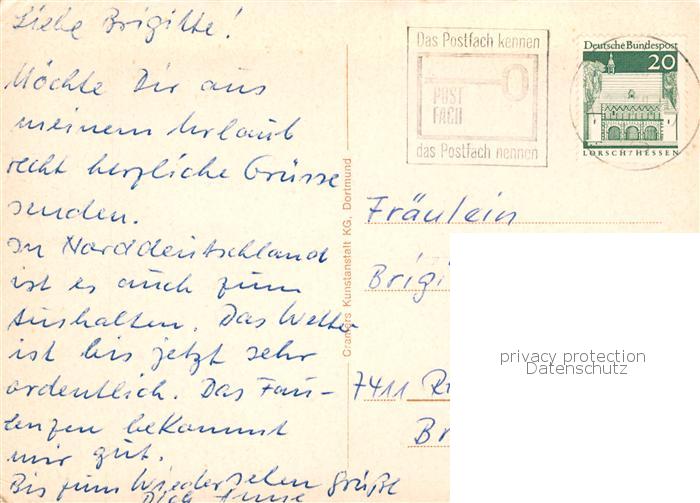 Liebe Brigitte!
Möchte Dir aus
meinem Urlaub
recht herzliche Grüsse
senden.
In Norddeutschland
ist es auch zum
Aushalten. Das Wetter
ist bis jetzt sehr
ordentlich. Das Fau-
lenzen bekommt
mir gut.
Bis zum Wiedersehen grüßt
Dich Anne
Cramers Kunstanstalt KG, Dortmund
Das Postfach kennen
POST
FACH
das Postfach nennen
Deutsche Bundespost
20
LORSCH / HESSEN
Fräulein
Brigi
7411 R
Br
privacy protection
Datenschutz